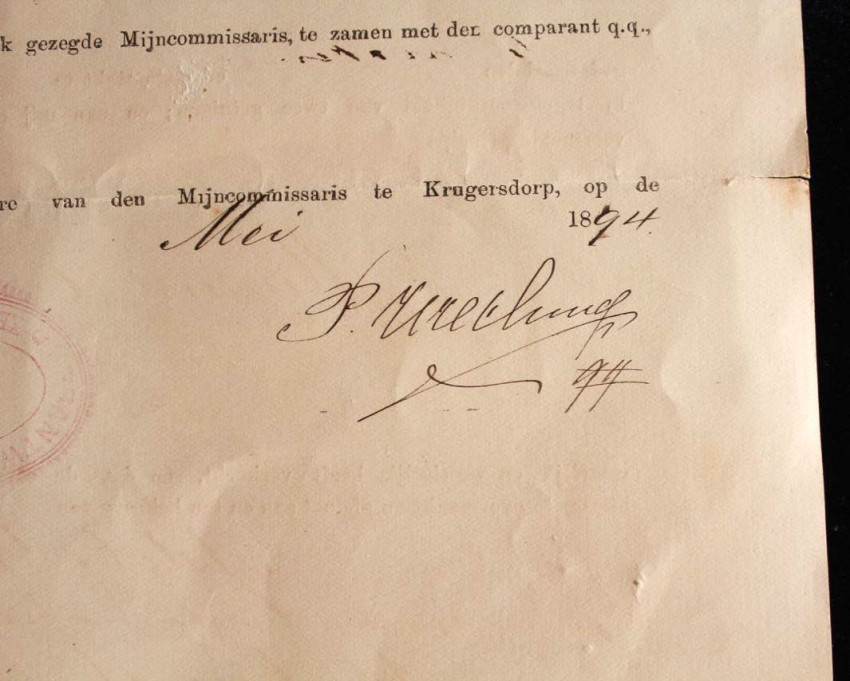 k gezegde Mijncommissaris, te zamen met den comparant q.q.,
van den Mijncommissaris te Krugersdorp, op de
Mei 1894.
P.
qq